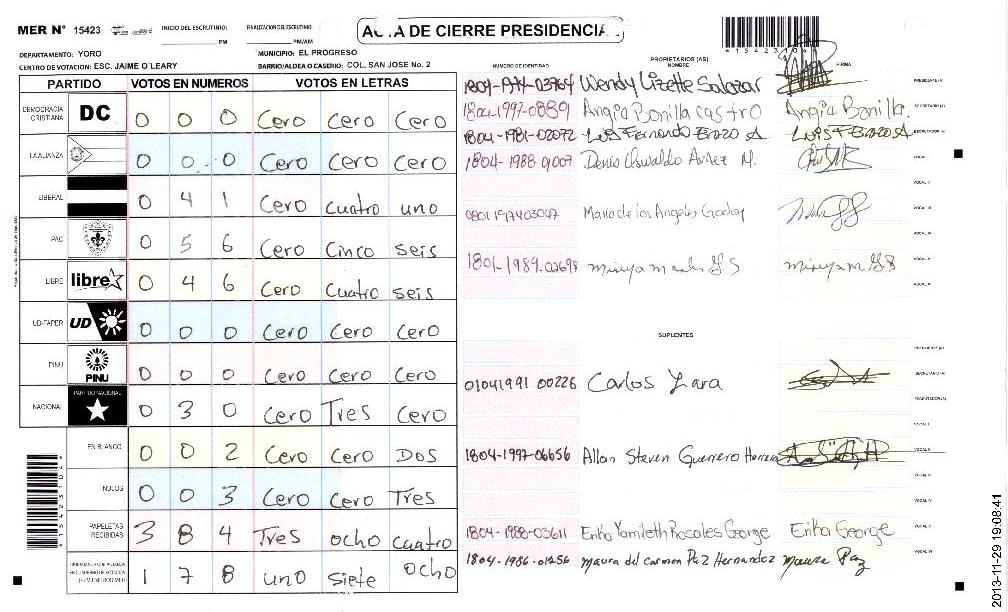 MER N° 15423 INICIO DEL ESCRUTINIO: PM FINALIZACION DEL ESCRUTINIO PM/AM
ACTA DE CIERRE PRESIDENCIAL
DEPARTAMENTO: YORO MUNICIPIO: EL PROGRESO
CENTRO DE VOTACION: ESC. JAIME O´LEARY BARRIO/ALDEA O CASERIO: COL. SAN JOSE No. 2
PARTIDO VOTOS EN NUMEROS VOTOS EN LETRAS
DEMOCRACIA CRISTIANA DC 0 0 0 Cero Cero Cero
LA ALIANZA 0 0 0 Cero Cero Cero
LIBERAL 0 4 1 Cero Cuatro uno
PAC 0 5 6 Cero Cinco seis
LIBRE libre 0 4 6 Cero Cuatro seis
UD-FAPER UD 0 0 0 Cero Cero Cero
PINU PINU 0 0 0 Cero Cero Cero
NACIONAL PARTIDO NACIONAL 0 3 0 Cero Tres Cero
EN BLANCO 0 0 2 Cero Cero Dos
NULOS 0 0 3 Cero Cero Tres
PAPELETAS RECIBIDAS 3 8 4 Tres ocho cuatro
1 7 8 uno siete ocho
NUMERO DE IDENTIDAD PROPIETARIOS (AS) NOMBRE FIRMA
Wendy Lizette Salazar PRESIDENTE (A)
Angia Bonilla Castro Angia Bonilla. SECRETARIO (A)
1804-1981-02072 Luis Fernando Erazo A. Luis F Erazo A ESCRUTADOR (A)
Denis Oswaldo M.
Maria de los Angeles Godoy
1801-1989-02698
SUPLENTES
PRESIDENTE (A)
01041991 00226 Carlos Lara SECRETARIO (A)
ESCRUTADOR (A)
1804-1997-06656 Allan Steven Guerrero Herrera
1804-1988-03611 Erika Yamileth Rosales George Erika George
1804-1986-01256 Maura del carmon Paz Hernandez Maura Paz
2013-11-29 19:08:41